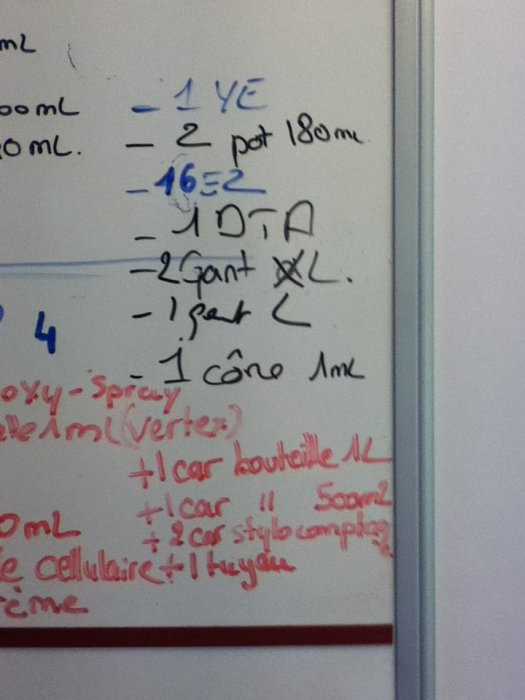 mL
00mL
0mL.
- 1 YE
- 2 pot 180mL
- 16=2
- 1 DTA
- 2 Gant XL.
- 1 gant L
4
- 1 cône 1mL
oxy-Spray
1mL (vertex)
+1 car bouteille 1L
+1 car " 500mL
0mL
+ 2 car stylo comptag
e cellulaire + 1 tuyau
ème